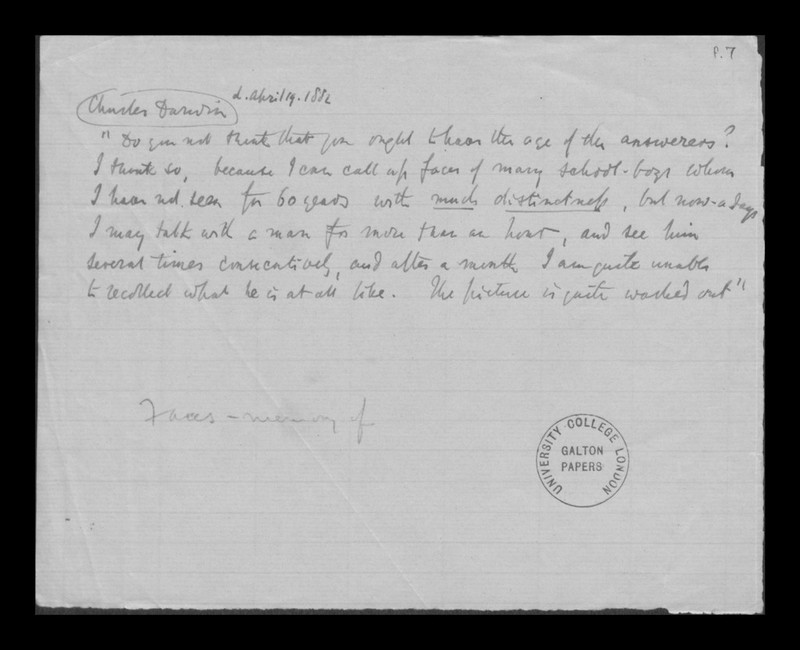 P. 7
Charles Darwin d. April 19. 1882
"Do you not think that you ought to have the age of the answerers?
I think so, because I can call up faces of many school-boys whom
I have not seen for 60 years with much distinctness, but now-a days
I may talk with a man for more than an hour, and see him
several times consecutively, and after a month I am quite unable
to recollect what he is at all like. The picture is quite washed out"
Faces - memory of
UNIVERSITY COLLEGE LONDON
GALTON
PAPERS